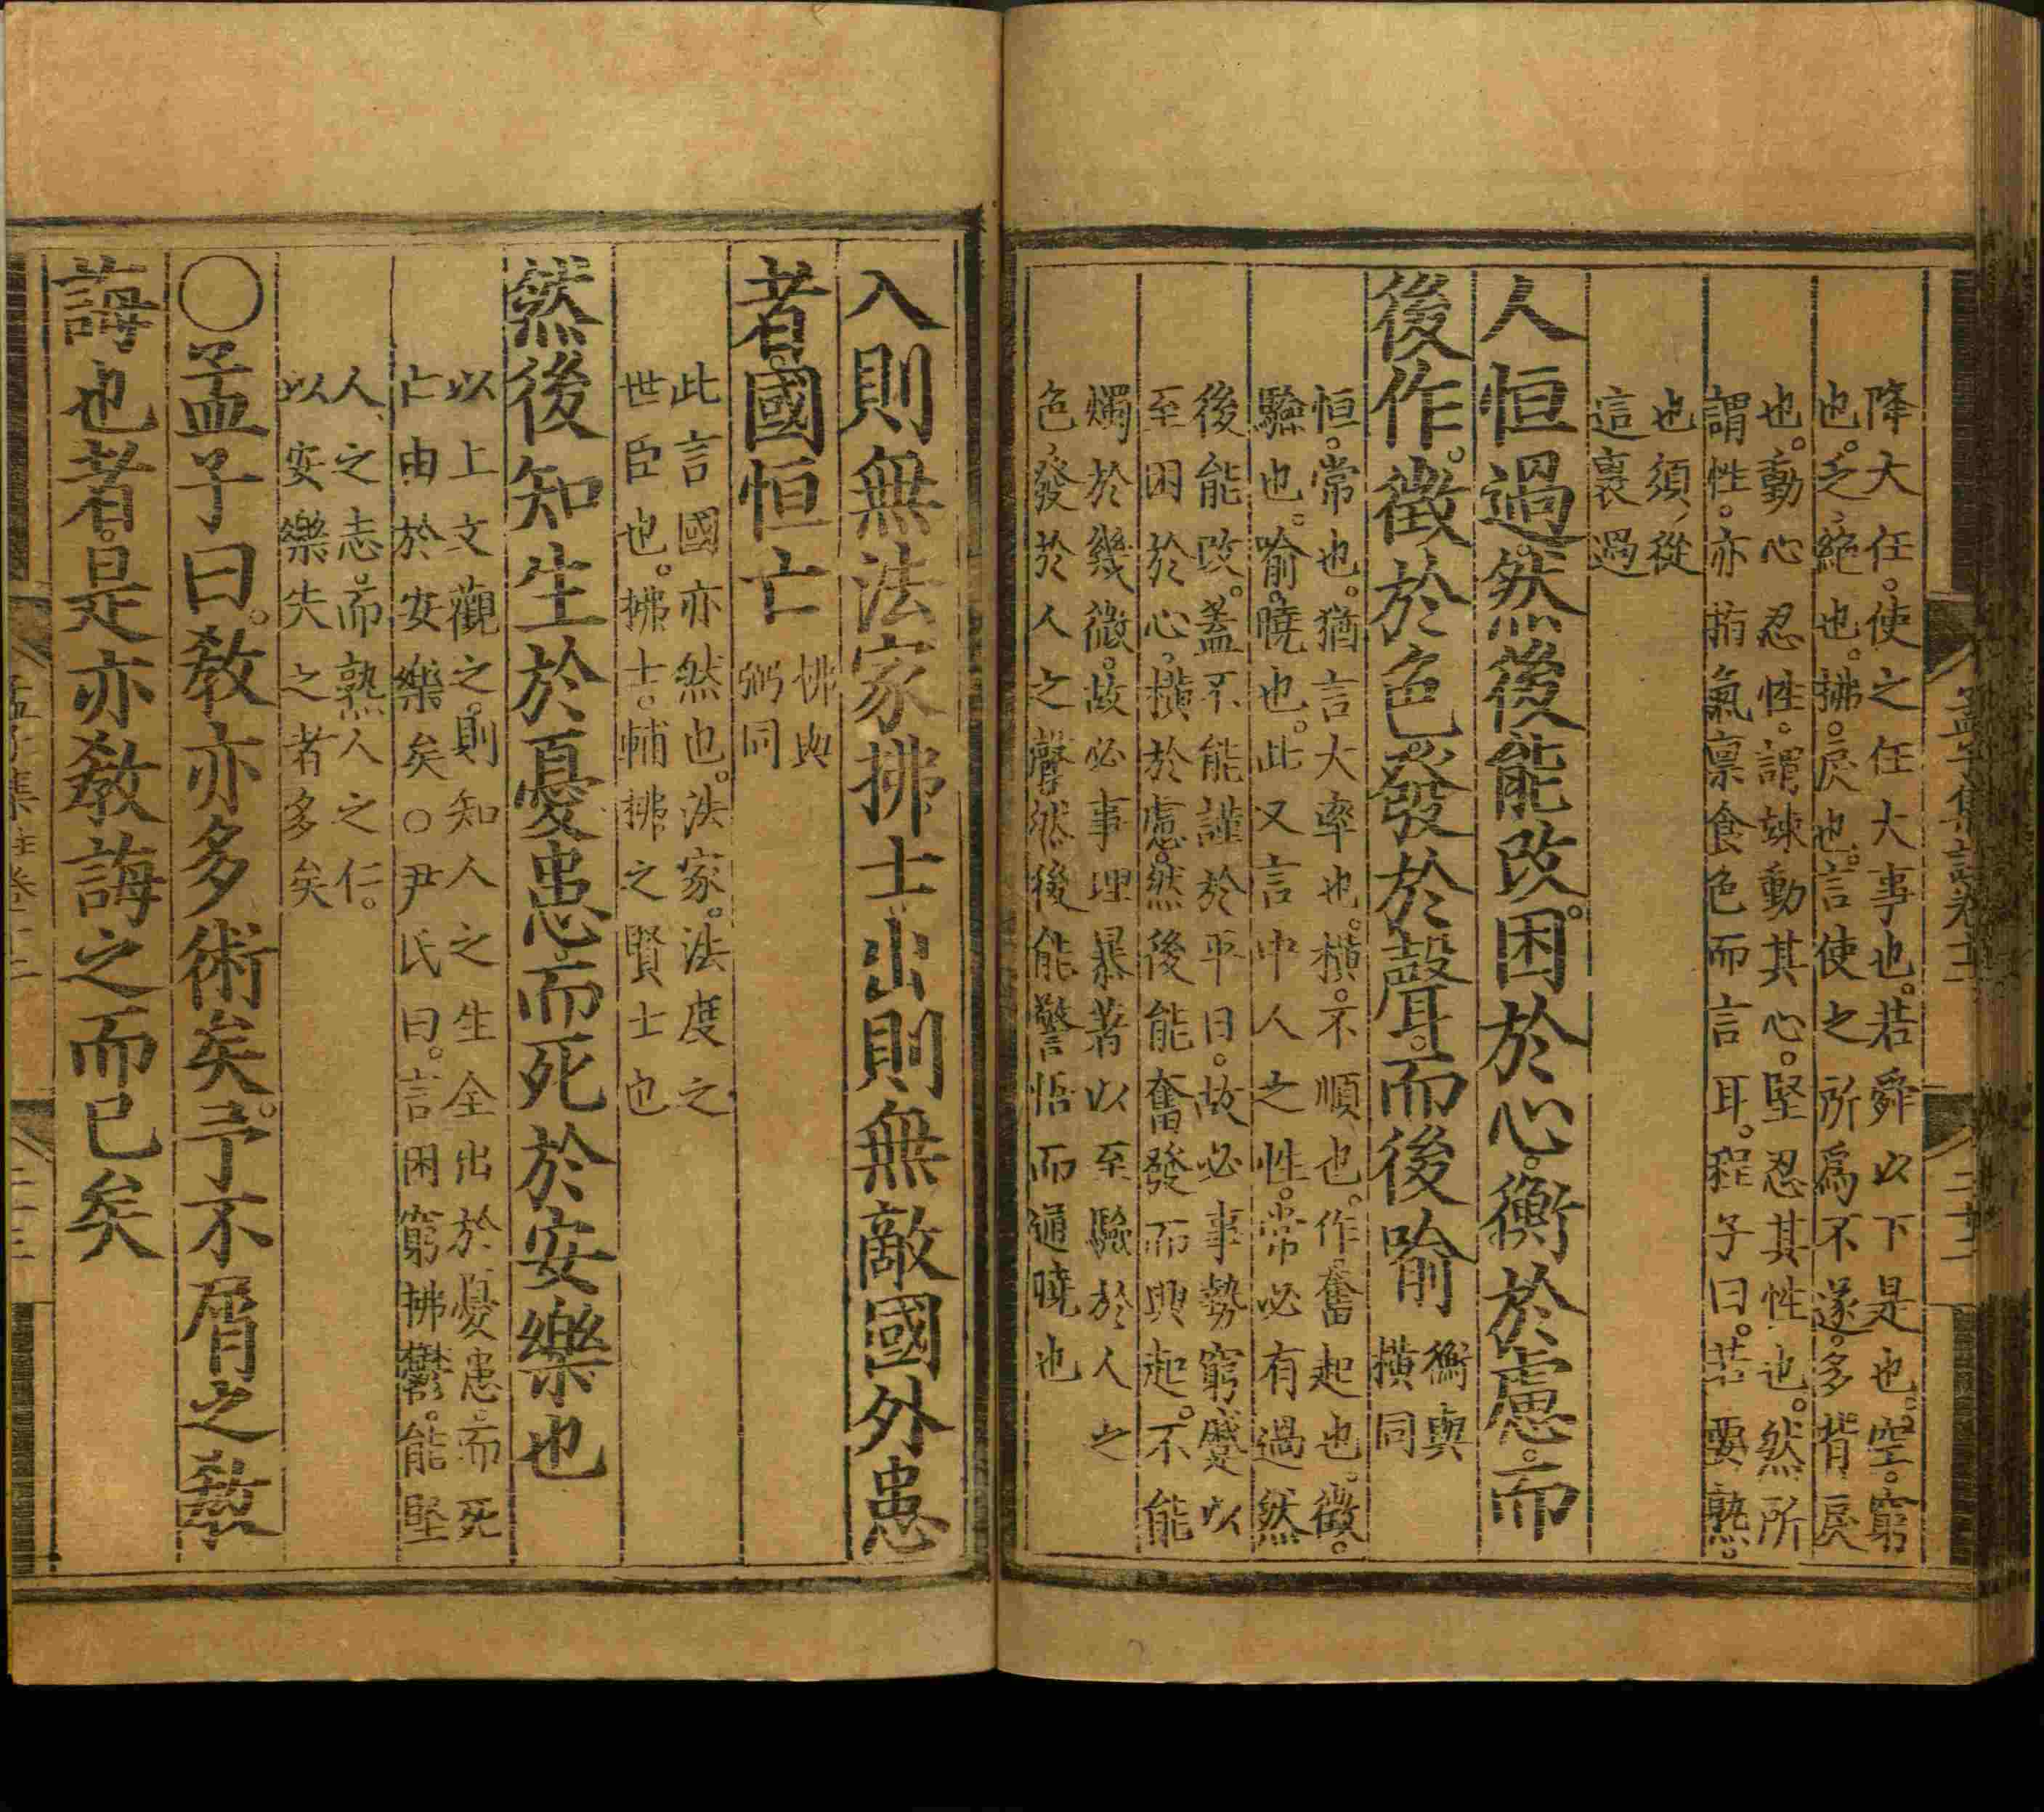 降大任。使之任大事也。若舜以下是也。空。窮
也。乏絕也。拂。戾也。言使之所爲不遂。多背戾
也。動心忍性。謂竦動其心。堅忍其性也。然所
謂性。亦指氣禀食色而言耳。程子曰。若要熟。
也須從
這裏過
人恒過。然後能改。困於心。衡於慮。而
後作。徵於色。發於聲。而後喻
衡與
橫同
恒。常也。猶言大率也。橫。不順也。作。奮起也。徵。
驗也。喻。曉也。此又言中人之性。常必有過然
後能改。蓋不能謹於平日。故必事勢窮蹙以
至困於心。橫於慮。然後能奮發而興起。不能
燭於幾微。故必事理暴著以至驗於人之
色、發於人之聲。然後能警悟而通曉也
孟子集註卷十二
二十二
入則無法家拂士出則無敵國外患
者。國恒亡
拂與
弼同
此言國亦然也。法家。法度之
世臣也。拂士。輔拂之賢士也
然後知生於憂患。而死於安樂也
以上文觀之。則知人之生全出於憂患。而死
亡由於安樂矣○尹氏曰。言困窮拂鬱。能堅
人之志。而熟人之仁。
以安樂失之者多矣
○孟子曰。敎亦多術矣。予不屑之敎
誨也者。是亦敎誨之而已矣
孟子集註卷十二
二十三